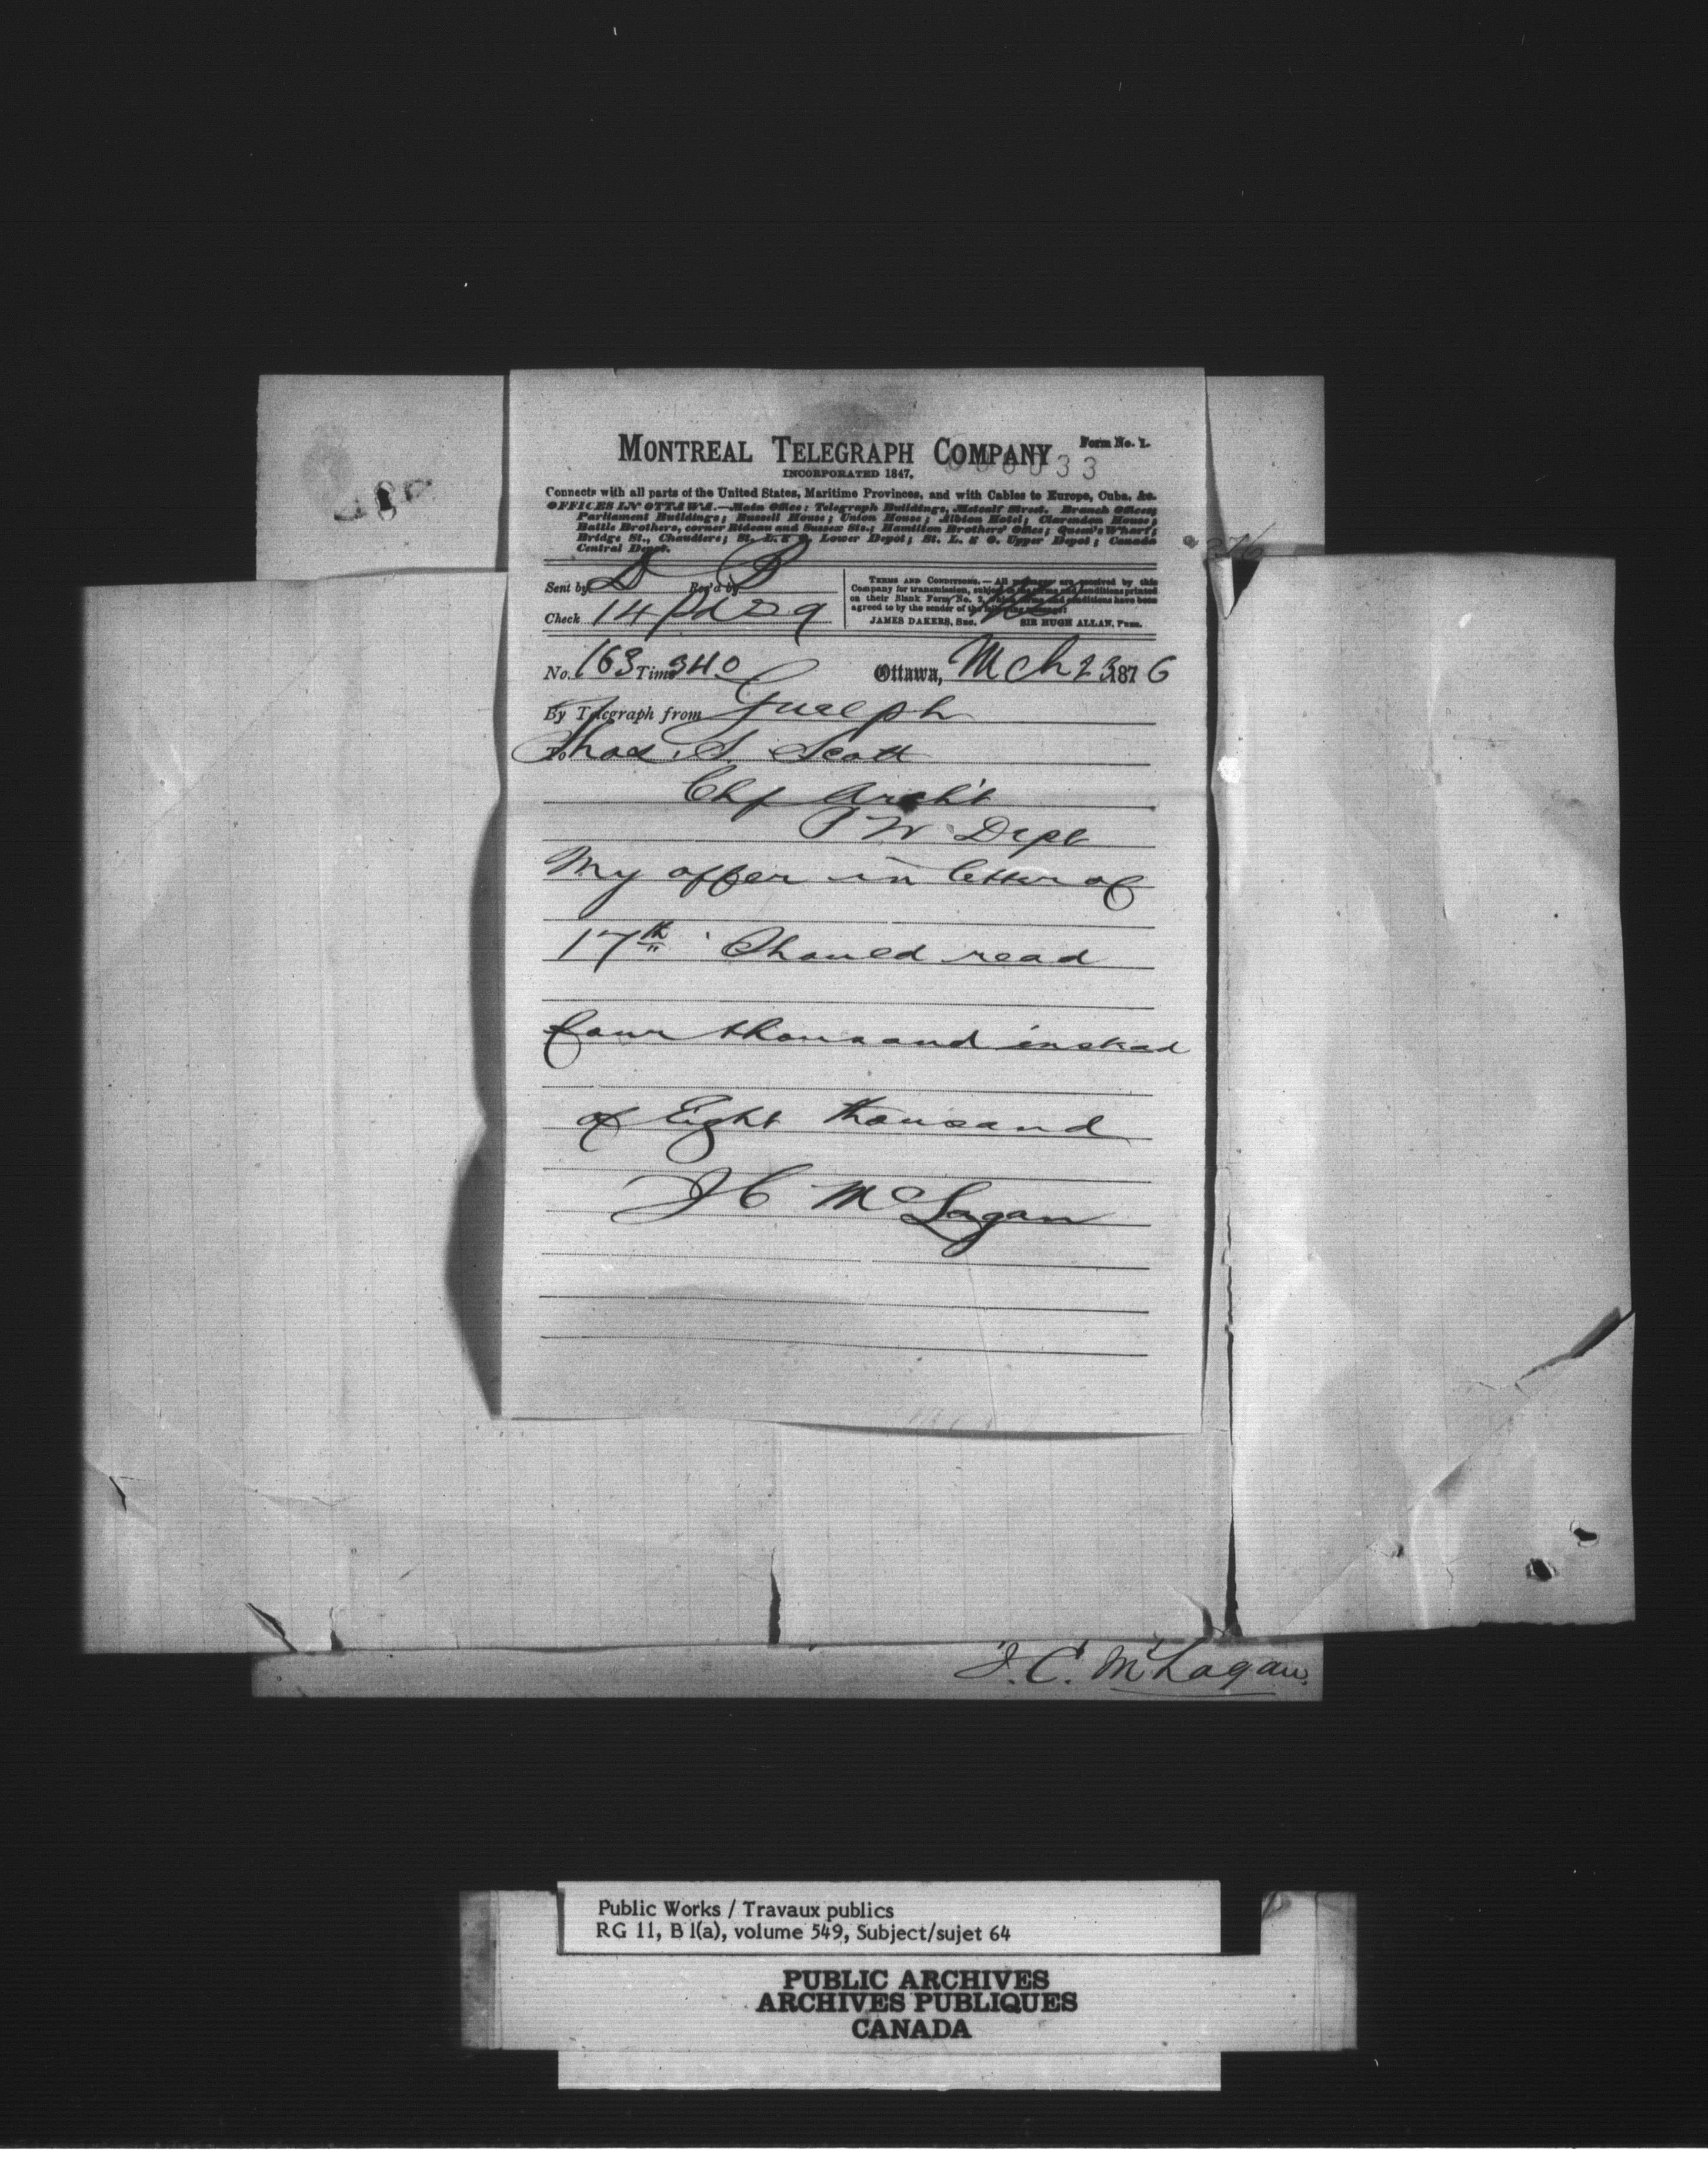 MONTREAL TELEGRAPH COMPANY
Form No. 1.
33
INCORPORATED 1847.
Connects with all parts of the United States, Maritime Provinces, and with Cables to Europe, Cuba, &c.
OFFICES IN OTTAWA.—Main Office: Telegraph Buildings, Metcalf Street. Branch Offices;
Parliament Buildings; Russell House; Union House; Albion Hotel; Clarendon House;
Battle Brothers, corner Rideau and Sussex Sts.; Hamilton Brothers' Office; Queen's Wharf;
Bridge St., Chaudiere; St. L. & O. Lower Depot; St. L. & O. Upper Depot; Canada
Central Depot.
Sent by D Rec'd by B
Check 14 pd 29
TERMS AND CONDITIONS.—All messages are received by this
Company for transmission, subject to the terms and conditions printed
on their Blank Form No. 2, which terms and conditions have been
agreed to by the sender of the following message:
JAMES DAKERS, Sec. SIR HUGH ALLAN, Pres.
No. 163 Time 340 Ottawa, Mch 23 1876
By Telegraph from Guelph
To Thos. S. Scott
Chf Archt
P W Dept
My offer in letter of
17th Should read
four thousand instead
of Eight thousand
J C McLagan
J. C. McLagan
Public Works / Travaux publics
RG 11, B 1(a), volume 549, Subject/sujet 64
PUBLIC ARCHIVES
ARCHIVES PUBLIQUES
CANADA